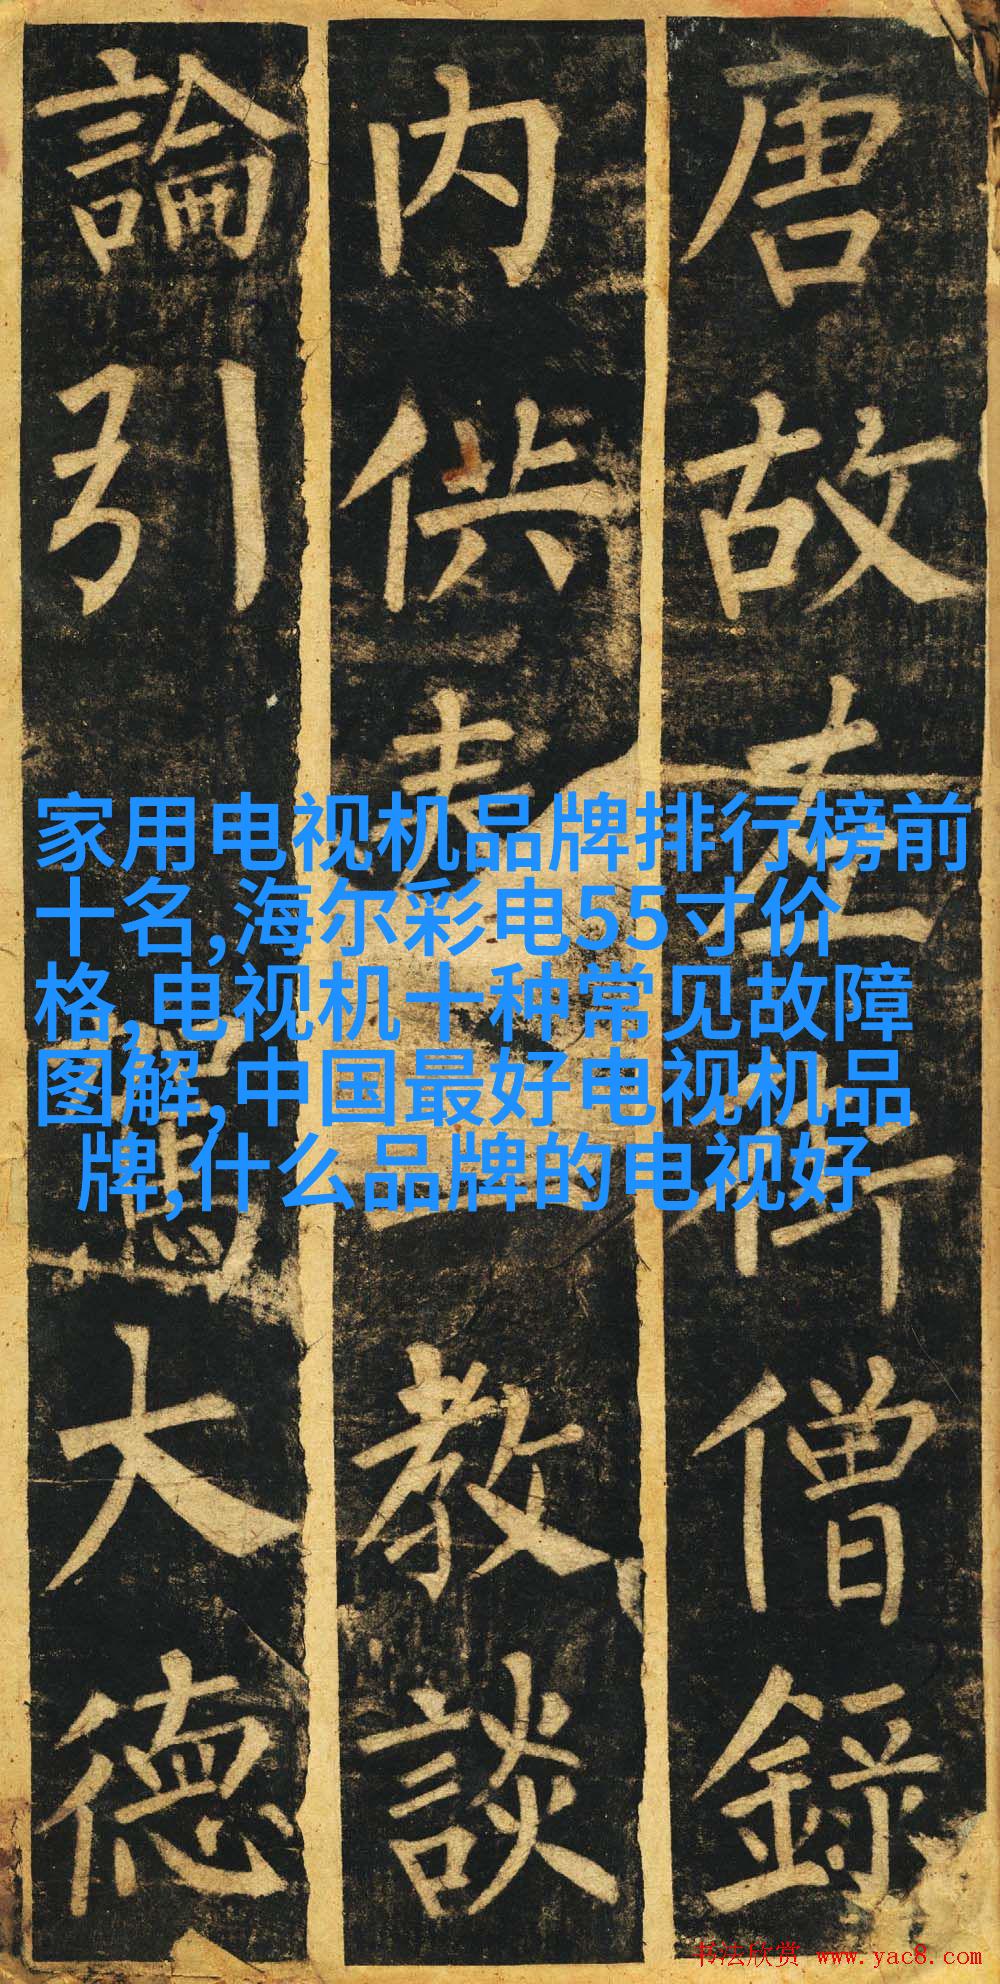 唐故左街僧錄
内供奉教談
論引大德
家用电视机品牌排行榜前
十名,海尔彩电55寸价
格,电视机十种常见故障
图解,中国最好电视机品
牌,什么品牌的电视好
书法欣赏 www.yac8.com